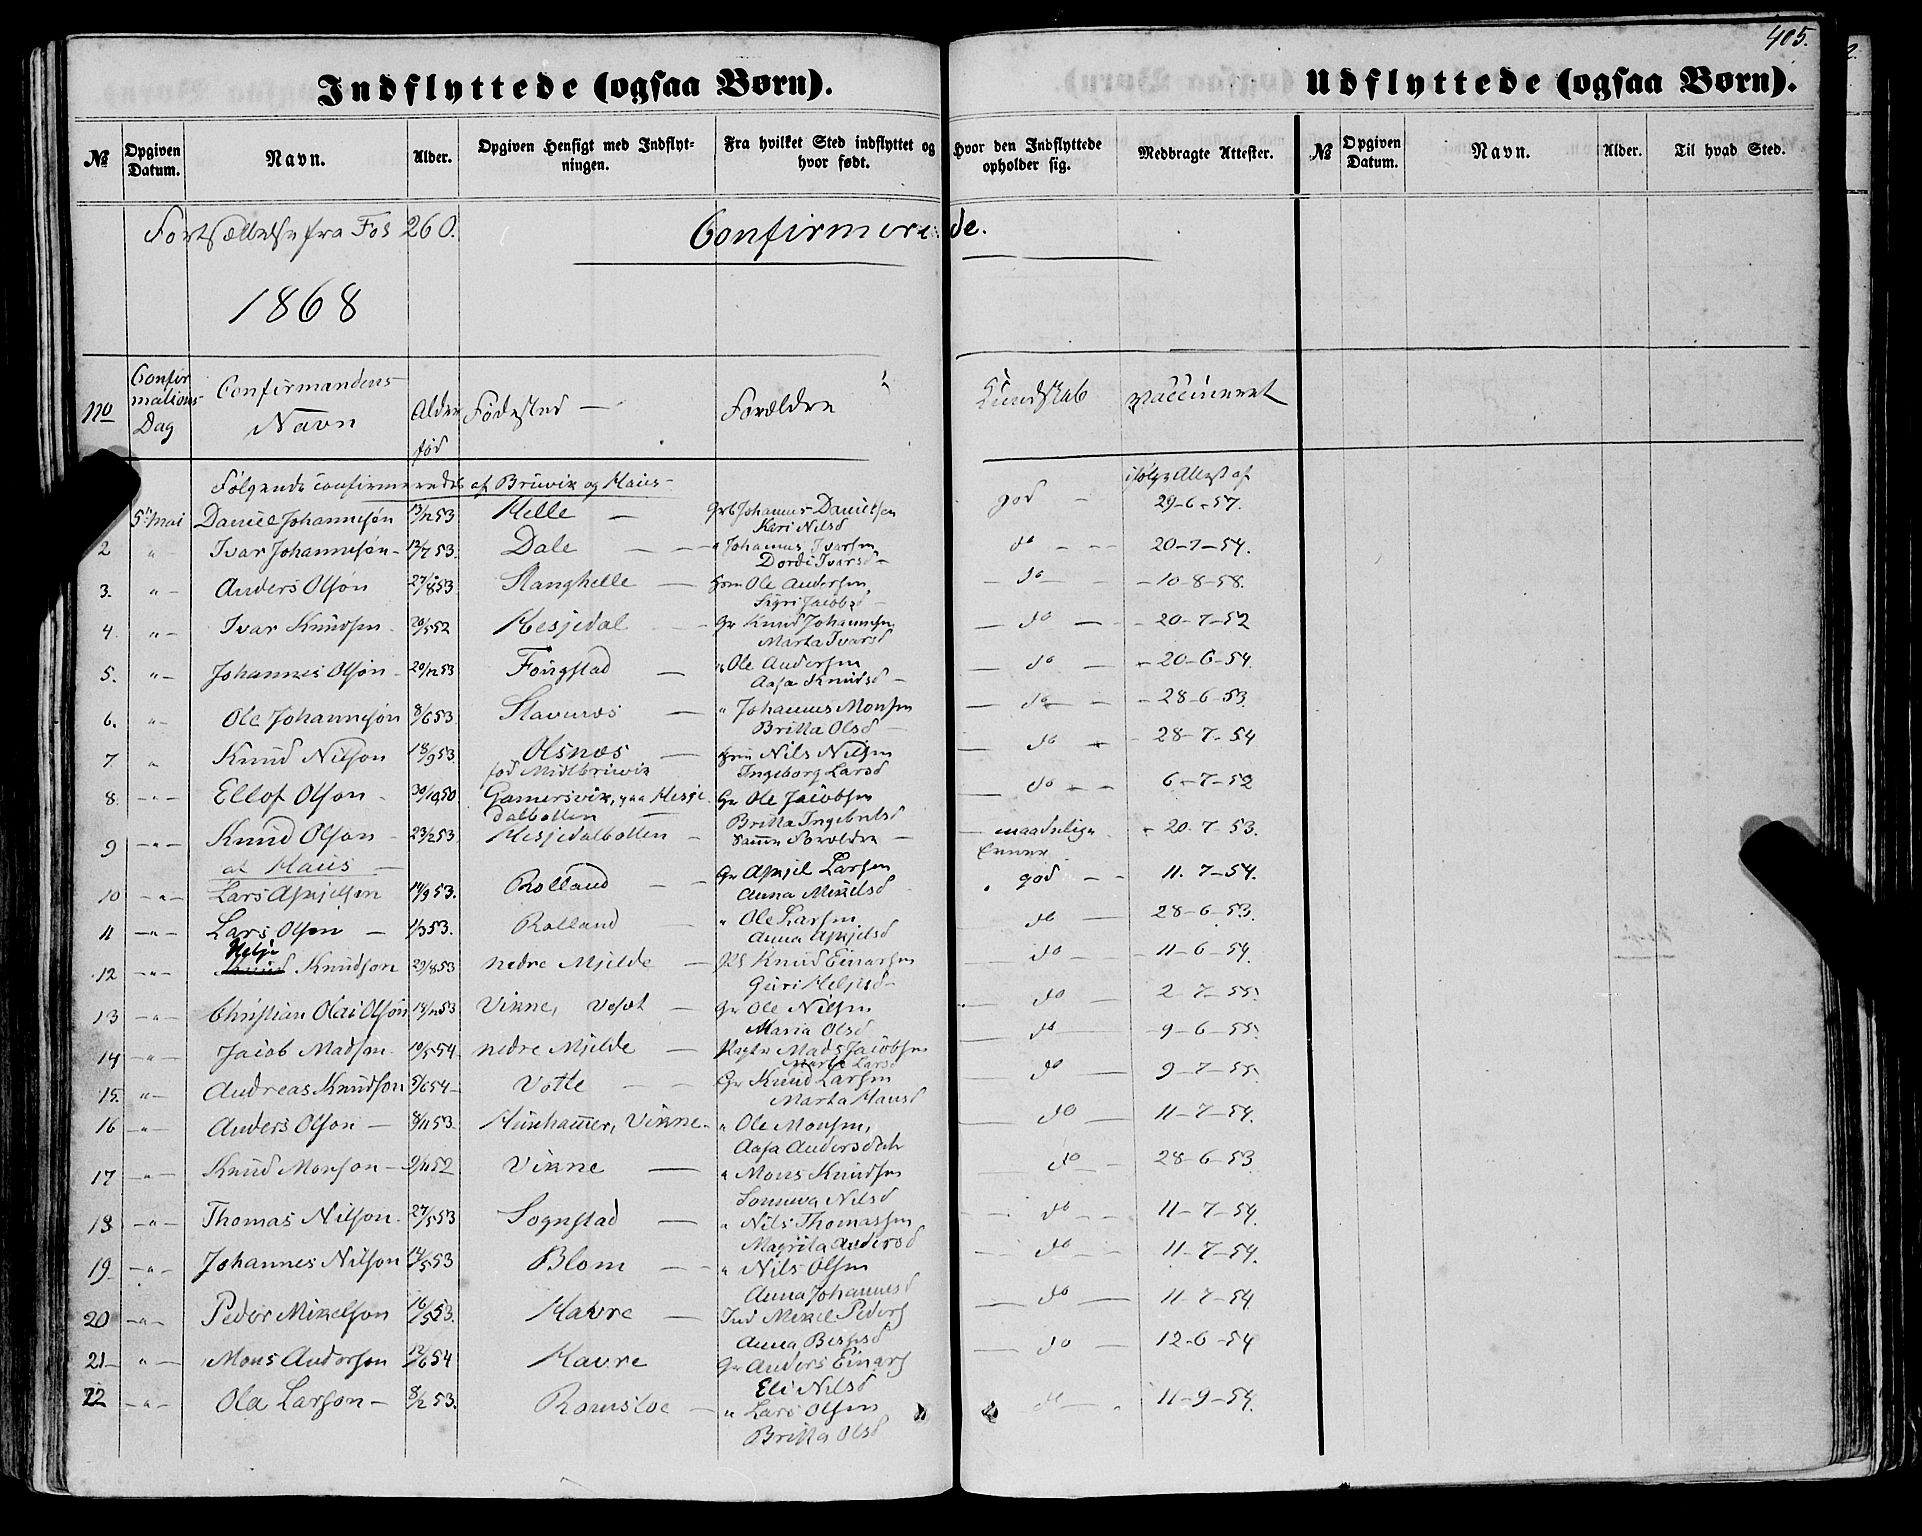 405.
Indflyttede (ogsaa Børn).
Udflyttede (ogsaa Børn).
№ Opgiven Datum. Navn. Alder. Opgiven Hensigt med Indflytningen. Fra hvilket Sted indflyttet og hvor født. Hvor den Indflyttede opholder sig. Medbragte Attester. № Opgiven Datum. Navn. Alder. Til hvad Sted.
Fortsættelse fra Fol 260. Confirmerede.
1868
No Confirmations Dag Confirmandens Navn Alder født Fødested Forældre Kundskab Vaccineret
Følgende confirmeredes af Bruvik og Haus
ifølge Attest af
5te Mai Daniel Johanneson 13/12 53 Helle Grb Johannes Danielsen god 29-6-57.
Kari Nilsd
2 " Ivar Johanneson 12/7 53. Dale " Johannes Ivarsen do 20-7-54.
Dordi Ivarsd
3. " Anders Olson 27/8 53 Stanghelle Hm Ole Andersen do 10-8-58.
Sigri Jacobsd
4. " Ivar Knudsen 20/5 52 Hesjedal Gr Knud Johannesen do 20-7-52
Marta Ivarsd
5. " Johannes Olson 20/12 53 Fougstad " Ole Andersen do 20-6-54.
Aasa Knudsd
6. " Ole Johanneson 8/6 53 Stavenes " Johannes Monsen do 28-6-53.
Britta Olsd
7. " Knud Nilson 18/9 53 Olsnæs Hm Nils Nilsen do 28-7-54
fød Midtbruvik Ingeborg Larsd
8. " Ellof Olson 30/10 50 Gamersvik, paa Hesje Gr Ole Jacobsen do 6-7-52
dalbotten Britta Ingebrigtsd
9 " Knud Olson 23/2 53 Hesjedalbotten Samme Forældre maadelige 20-7-53.
Evner
af Haus
10 " Lars Askjelsen 14/9 53. Rolland Gr Askjel Larsen god 11-7-54.
Anna Mikelsd
11 " Lars Olsen 1/3 53. Rolland " Ole Larsen do 28-6-53.
Anna Askjelsd
Helje
12 " Knud Knudson 29/8 53 nedre Mjelde Knud Einarsen do 11-6-54.
Guri Heljesd
13 " Christian Olai Olson 14/12 53 Vinne, Gr Ole Nilsen do 2-7-55.
Maria Olsd
14 " Jacob Madsen 10/5 54 nedre Mjelde Mads Jacobsen do 9-6-55.
Marte Larsd
15. " Andreas Knudson 5/6 54 Votle Gr Knud Larsen do 9-7-55.
Marta Hansd
16 " Anders Olson 8/11 53. Hushammer, Vinne " Ole Monsen, do 11-7-54.
Aasa Andersdatr
17 " Knud Monson 9/11 52 Vinne " Mons Knudsen do 28-6-53
Sonneva Nilsd
18 " Thomas Nilson 27/5 53 Sognstad " Nils Thomassen do 11-7-54.
Magrita Andersd
19 " Johannes Nilson 14/5 53 Blom " Nils Olsen do 11-7-54.
Anna Johannesd
20 " Peder Mikelson 16/5 53. Havre Ind Mikel Peders do 11-7-54
Anna
21 " Mons Anderson 12/6 54 Havre Gr Anders Einars do 12-6-54
Eli Nilsd
22 " Ola Larson 8/2 53. Romsloe " Lars Olsen do 11-9-54.
Britta Olsd